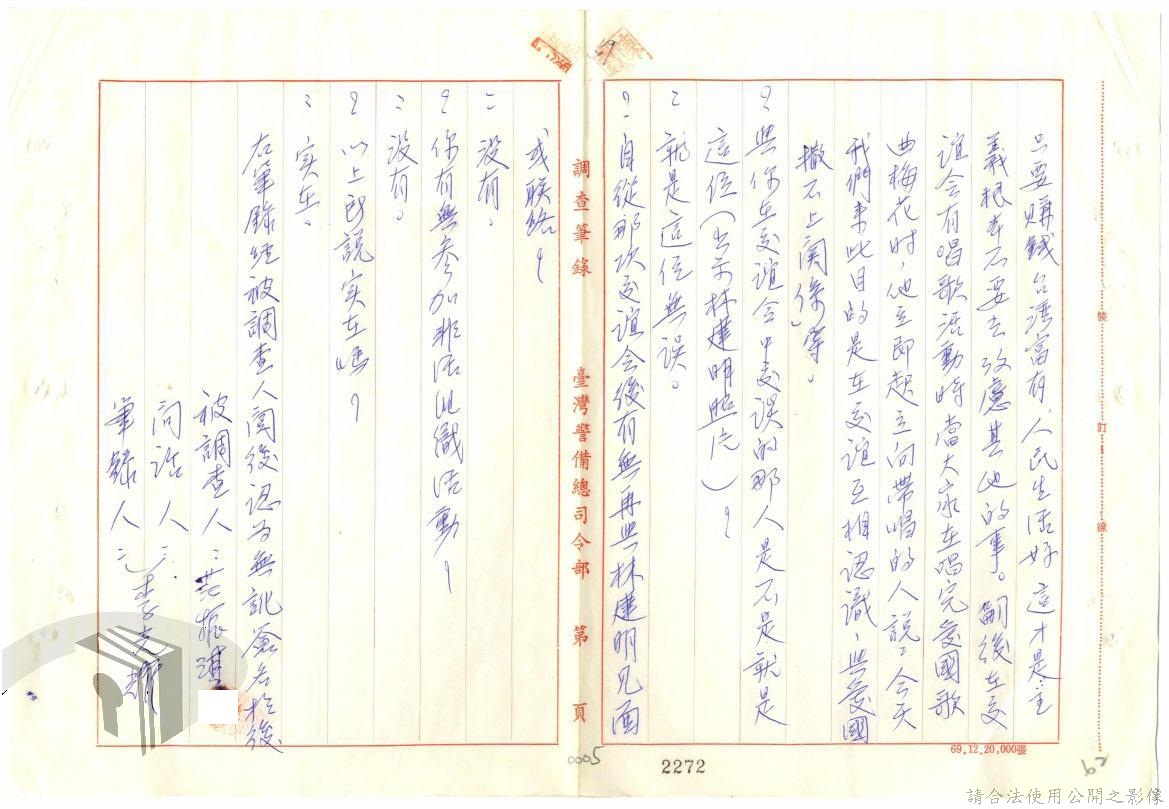 只要賺錢台湾富有,人民生活好這才是主
義根本不要去攷慮其他的事。嗣後在交
誼会有唱歌活動時當大家在唱完愛國歌
曲梅花时,他立即起立向帶唱的人說:今天
我們来此目的是在交誼互相認識,與愛國
撤不上関係」等。
?與你在交誼会中交誤的那人是不是就是
這位(出示林 明照片)?
:就是這位無误。
?自從那次交誼会後有無再與林 明見面
調查筆錄
臺灣警備總司令部
第 頁
或联络?
:没有。
?你有無参加非法組織活動?
:没有。
?以上所說实在嗎?
:实在。
右筆錄经被調查人閲後認為無訛簽名於後
被調查人:
問话人:
筆錄人:李
裝
訂
線
69.12.20,000張
0005
2272
62
請合法使用公開之影像